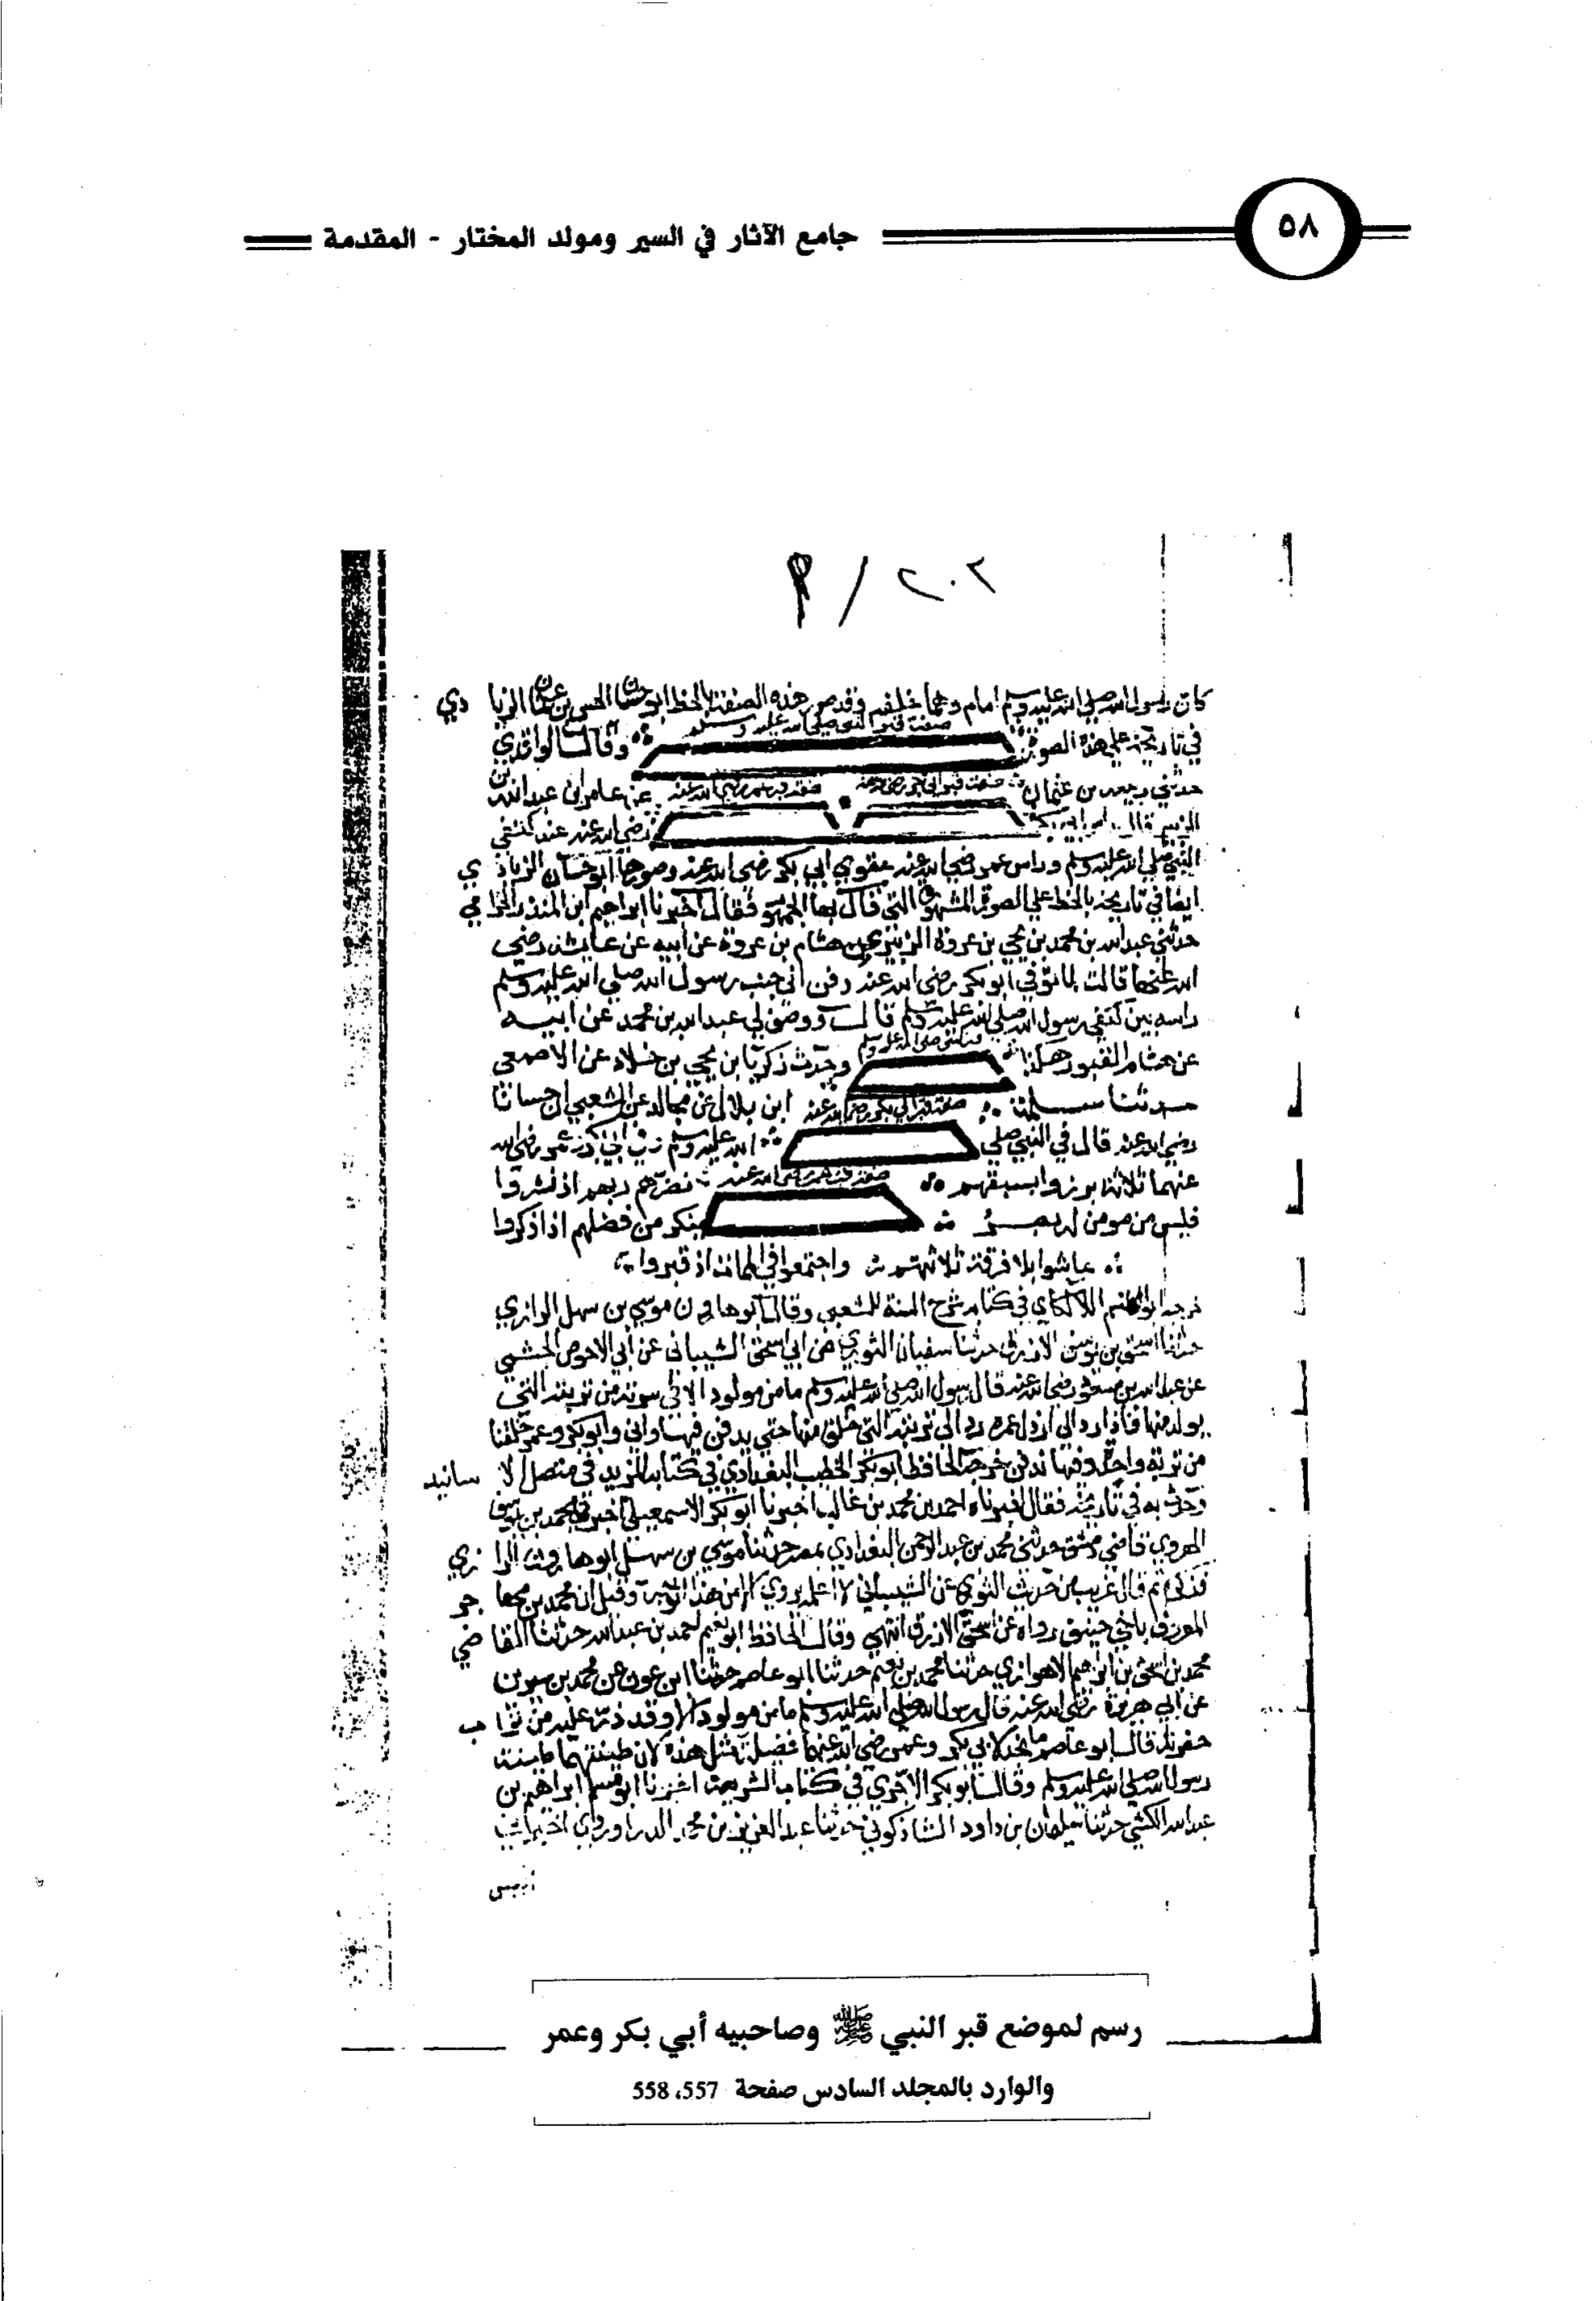 ٥٨
جامع الآثار في السير ومولد المختار - المقدمة
٢٠٢ /
كان رسول الله صلى الله عليه وسلم امام وهما خلفه وقد صور هذه الصفة بالخط ابو حسان الحسن بن عثمان الزيا دي
صفة قبر النبي صلى الله عليه وسلم
في تاريخه على هذه الصورة وقال الواقدي
صفة قبر ابي بكر رضي الله عنه صفة قبر عمر رضي الله عنه
حدثني ربيعة بن عثمان عن عامر بن عبد الله بن
الزبير قال راس ابي بكر رضي الله عنه عند كتفي
النبي صلى الله عليه وسلم وراس عمر رضي الله عنه عند حقوي ابي بكر رضي الله عنه وصورها ابو حسان الزياد ي
ايضا في تاريخه بالخط على الصورة المشهورة التي قال بها الجمهور فقال اخبرنا ابراهيم ابن المنذر الحزامي
حدثني عبد الله بن محمد بن يحيى بن عروة الزبيري عن هشام بن عروة عن ابيه عن عايشة رضي
الله عنها قالت لما توفي ابو بكر رضي الله عنه دفن الى جنب رسول الله صلى الله عليه وسلم
راسه بين كتفي رسول الله صلى الله عليه وسلم قال ووصف لي عبد الله بن محمد عن ابيه
صلى الله عليه وسلم
عن هشام القبور هكذا وحدث زكريا بن يحيى بن خلاد عن الاصمعي
صفة قبر ابي بكر رضي الله عنه
حدثنا سلمة ابن بلال عن مجالد عن الشعبي ان حسانا
رضي الله عنه قال في النبي صلى الله عليه وسلم وفي ابي بكر وعمر رضي الله
صفة قبر عمر رضي الله عنه
عنهما ثلاثة برزوا بسبقهم نضرهم ربهم اذ نشروا
فليس من مومن له بصر ينكر من فضلهم اذا ذكروا
عاشوا بلا فرقة ثلاثتهم واجتمعوا في الممات اذ قبروا
خرجه ابو القاسم اللالكاي في كتابه شرح السنة للشعبي وقال ابو هارون موسى بن سهل الرازي
حدثنا اسحق بن يوسف الازرق حدثنا سفيان الثوري عن ابي اسحق الشيباني عن ابي الاحوص الجشمي
عن عبد الله بن مسعود رضي الله عنه قال رسول الله صلى الله عليه وسلم ما من مولود الا في سرته من تربته التي
يولد منها فاذا رد الى ارذل عمره رد الى تربته التي خلق منها حتى يدفن فيها واني وابو بكر وعمر خلقنا
من تربة واحدة وفيها ندفن خرجه الحافظ ابو بكر الخطيب البغدادي في كتابه المزيد في متصل الا سانيد
وحدث به في تاريخه فقال اخبرناه احمد بن محمد بن غالب اخبرنا ابو بكر الاسمعيلي اخبرني محمد بن يوسف
الهروي قاضي دمشق حدثني محمد بن عبد الرحمن البغدادي بمصر حدثنا موسى بن سهل ابو هارون الرا زي
فذكره ثم قال غريب من حديث الثوري عن الشيباني لا اعلمه يروي الا من هذا الوجه وقيل ان محمد بن مها جر
المعروف باخي حنيف رواه عن اسحق الازرق انتهى وقال الحافظ ابو نعيم احمد بن عبد الله حدثنا القا ضي
محمد بن اسحق بن ابراهيم الاهوازي حدثنا محمد بن نعيم حدثنا ابو عاصم حدثنا ابن عون عن محمد بن سيرين
عن ابي هريرة رضي الله عنه قال رسول الله صلى الله عليه وسلم ما من مولود الا وقد ذر عليه من ترا ب
حفرته قال ابو عاصم ما نجد لابي بكر وعمر رضي الله عنهما فضيلة مثل هذه لان طينتهما طينت
رسول الله صلى الله عليه وسلم وقال ابو بكر الاجري في كتاب الشريعة اخبرنا ابو مسلم ابراهيم بن
عبد الله الكشي حدثنا سليمان بن داود الشاذكوني حدثنا عبد العزيز بن محمد الدراوردي
رسم لموضع قبر النبي ﷺ وصاحبيه أبي بكر وعمر
والوارد بالمجلد السادس صفحة 557، 558